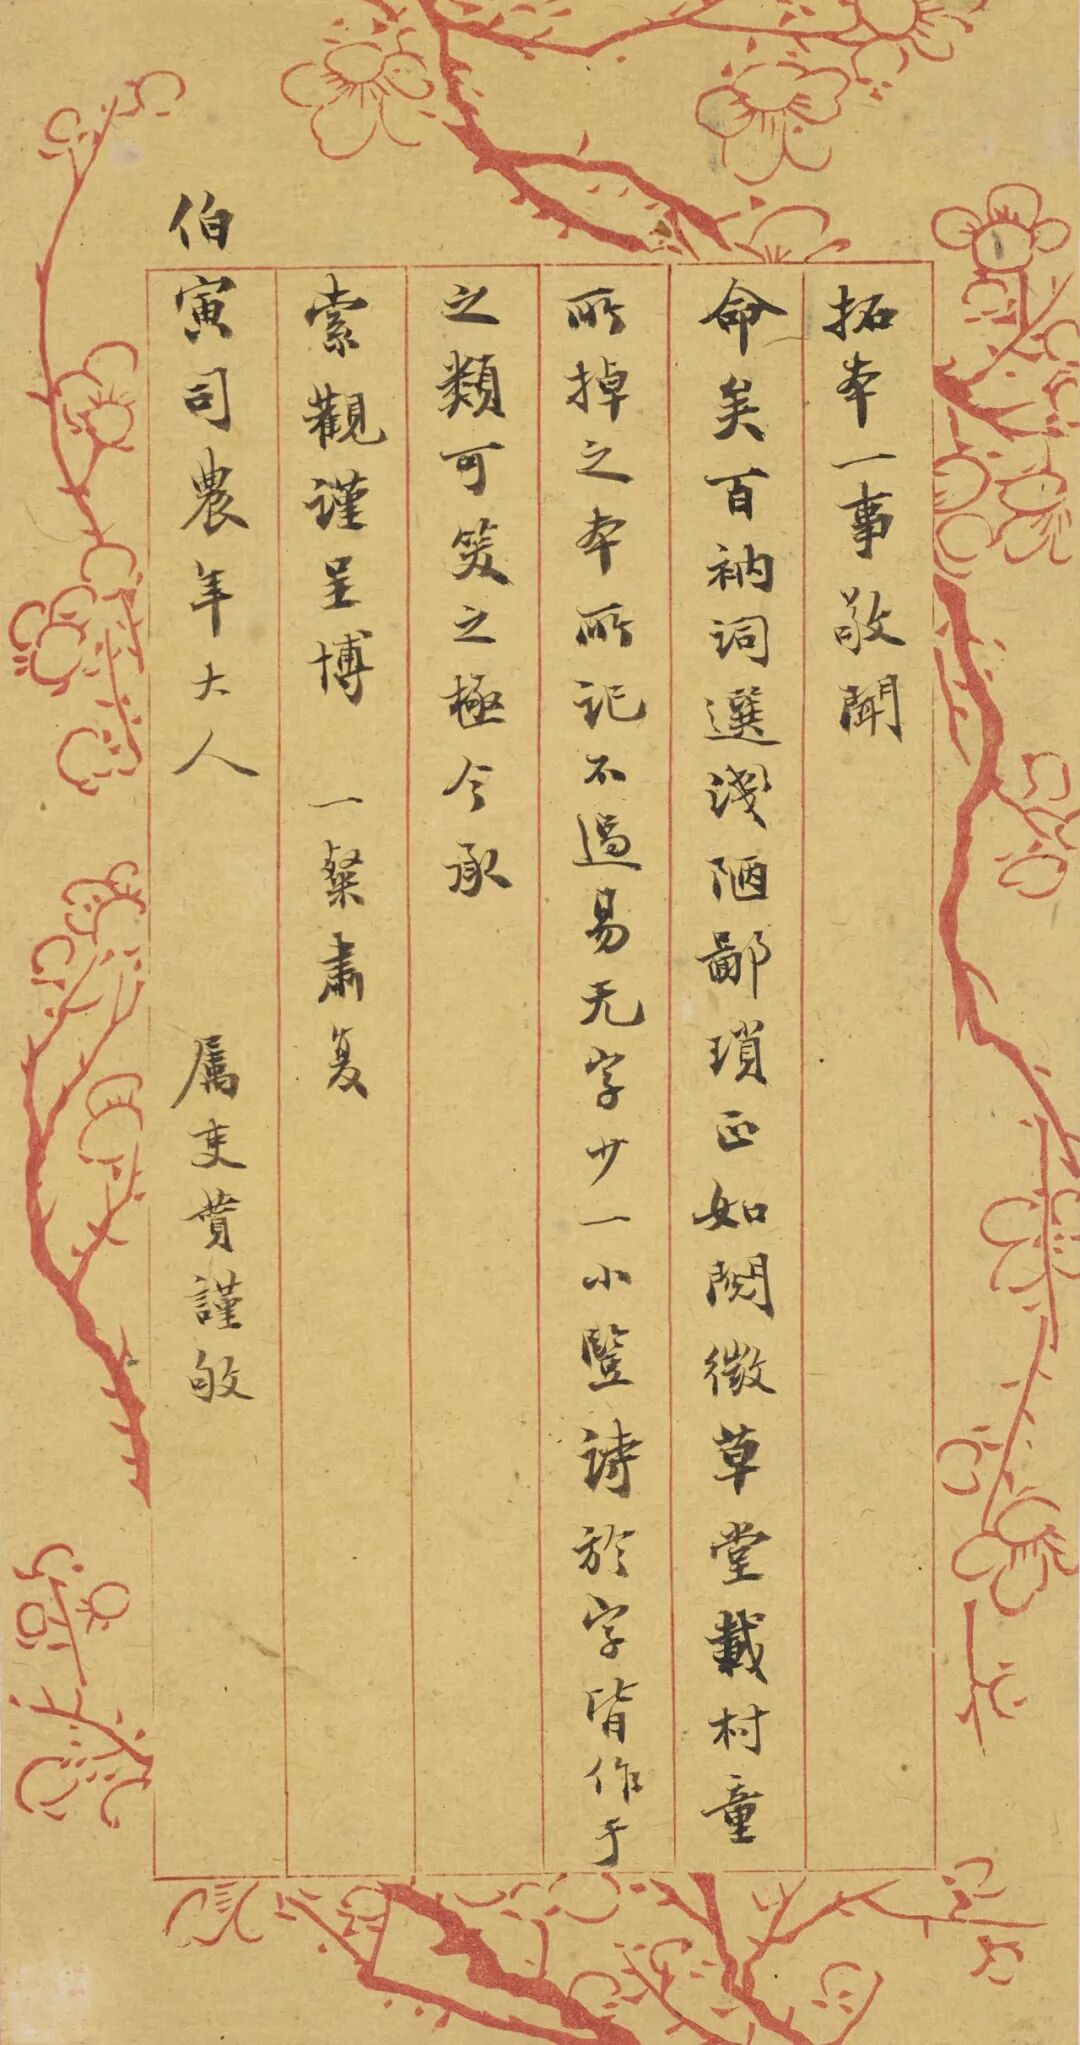 拓本一事敬聞
命矣百衲詞選淺陋鄙瑣正如閱微草堂載村童
所掉之本所記不過易无字少一小豎詩於字皆作于
之類可笑之極今承
索觀謹呈博 一粲肅复
伯寅司農年大人 屬吏賁謹敂